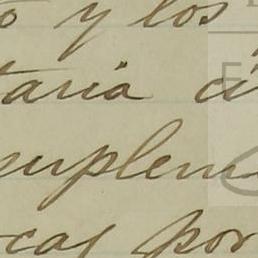 o y los
taria ci
suplem
cas por